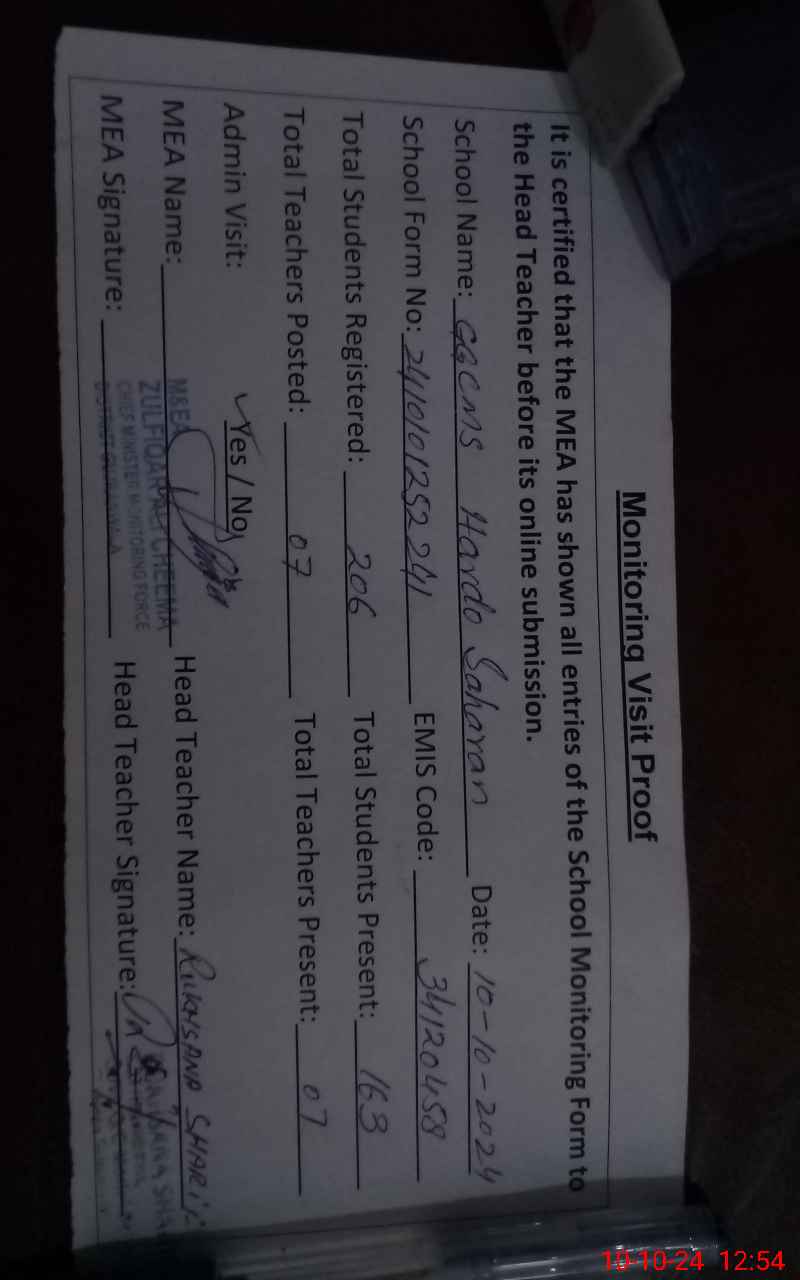 Monitoring Visit Proof
It is certified that the MEA has shown all entries of the School Monitoring Form to
the Head Teacher before its online submission.
School Name: GGCMS Hardo Saharan Date: 10-10-2024
School Form No: 2410101252241 EMIS Code: 34120458
Total Students Registered: 206 Total Students Present: 163
Total Teachers Posted: 07 Total Teachers Present: 07
Admin Visit: ✓Yes / No
MEA Name: Head Teacher Name: RUKHSANA SHARIF
MEA Signature: Head Teacher Signature:
M&EA
ZULFIQAR ALI CHEEMA
CHIEF MINISTER MONITORING FORCE
DISTRICT GUJRANWALA
10-10-24 12:54